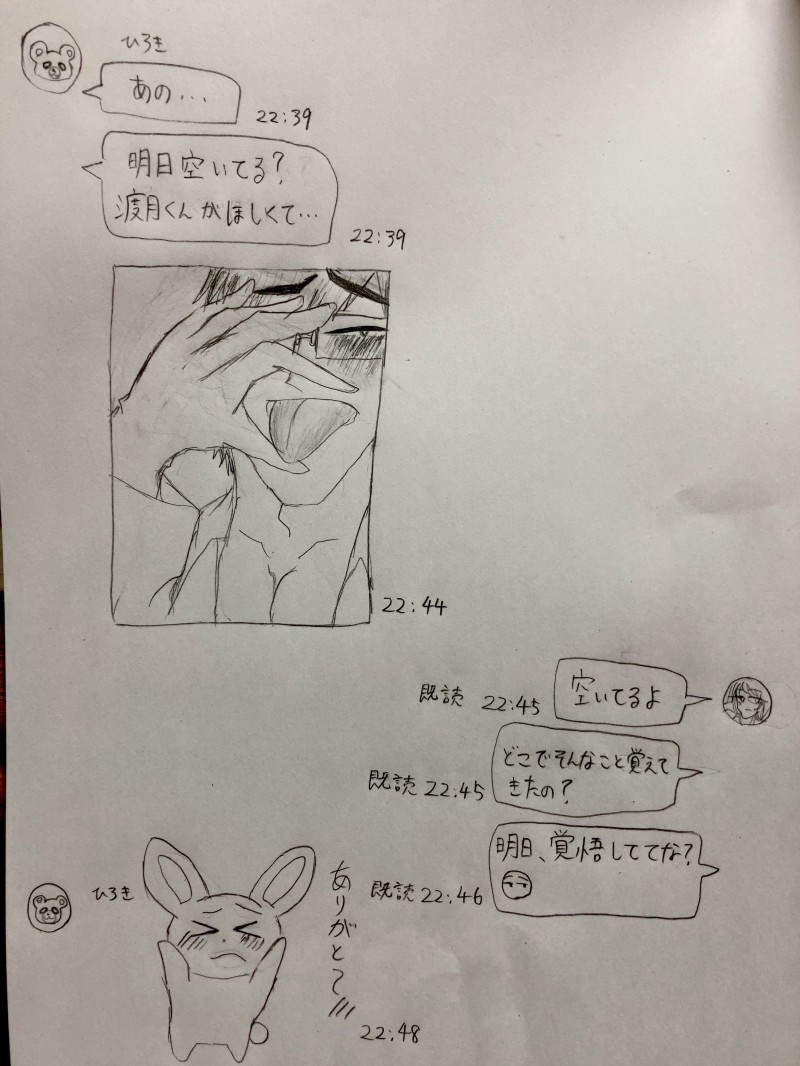 ひろき
あの...
22:39
明日空いてる?
渡月くんがほしくて...
22:39
22:44
空いてるよ
既読 22:45
どこでそんなこと覚えて
きたの?
既読 22:45
明日、覚悟しててな?
既読 22:46
ひろき
ありがとう
22:48